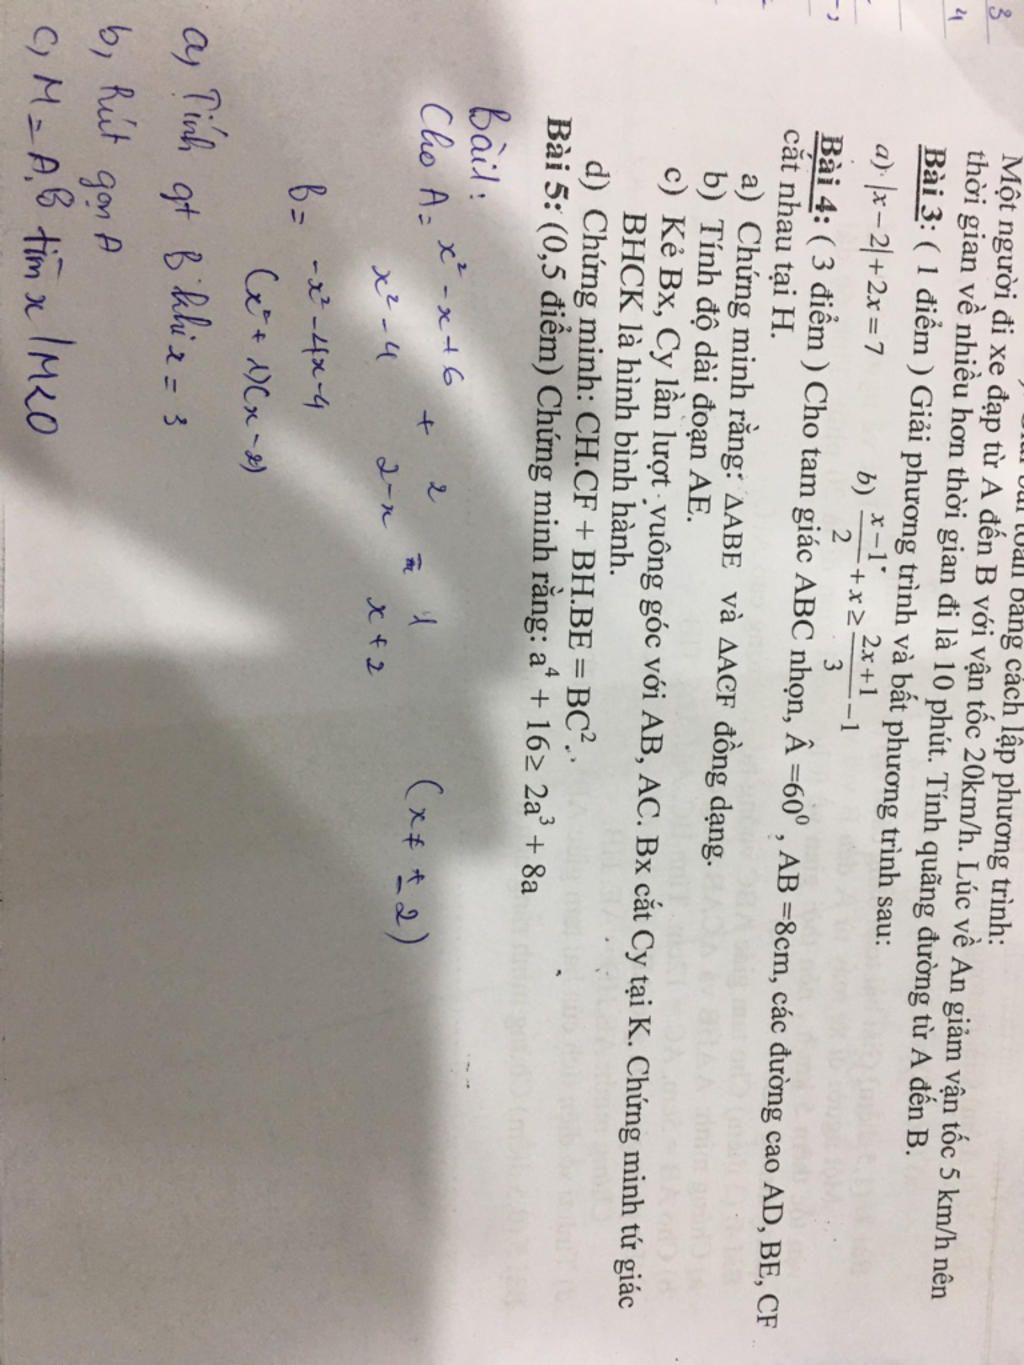 3
4
bằng cách lập phương trình:
Một người đi xe đạp từ A đến B với vận tốc 20km/h. Lúc về An giảm vận tốc 5 km/h nên
thời gian về nhiều hơn thời gian đi là 10 phút. Tính quãng đường từ A đến B.
Bài 3: ( 1 điểm ) Giải phương trình và bất phương trình sau:
a) |x − 2| + 2x = 7 b) \frac{x−1}{2} + x ≥ \frac{2x+1}{3} − 1
Bài 4: ( 3 điểm ) Cho tam giác ABC nhọn, Â =60⁰ , AB =8cm, các đường cao AD, BE, CF
cắt nhau tại H.
a) Chứng minh rằng: ΔABE và ΔACF đồng dạng.
b) Tính độ dài đoạn AE.
c) Kẻ Bx, Cy lần lượt vuông góc với AB, AC. Bx cắt Cy tại K. Chứng minh tứ giác
BHCK là hình bình hành.
d) Chứng minh: CH.CF + BH.BE = BC².
Bài 5: (0,5 điểm) Chứng minh rằng: a⁴ + 16≥ 2a³ + 8a
Bài1:
Cho A = \frac{x² - x + 6}{x² - 4} + \frac{2}{2-x} - \frac{1}{x+2} (x ≠ ± 2)
B = \frac{-x² - 4x - 4}{(x² + 1)(x - 2)}
a, Tính gt B khi x = 3
b, Rút gọn A
c, M = A.B tìm x / M<0